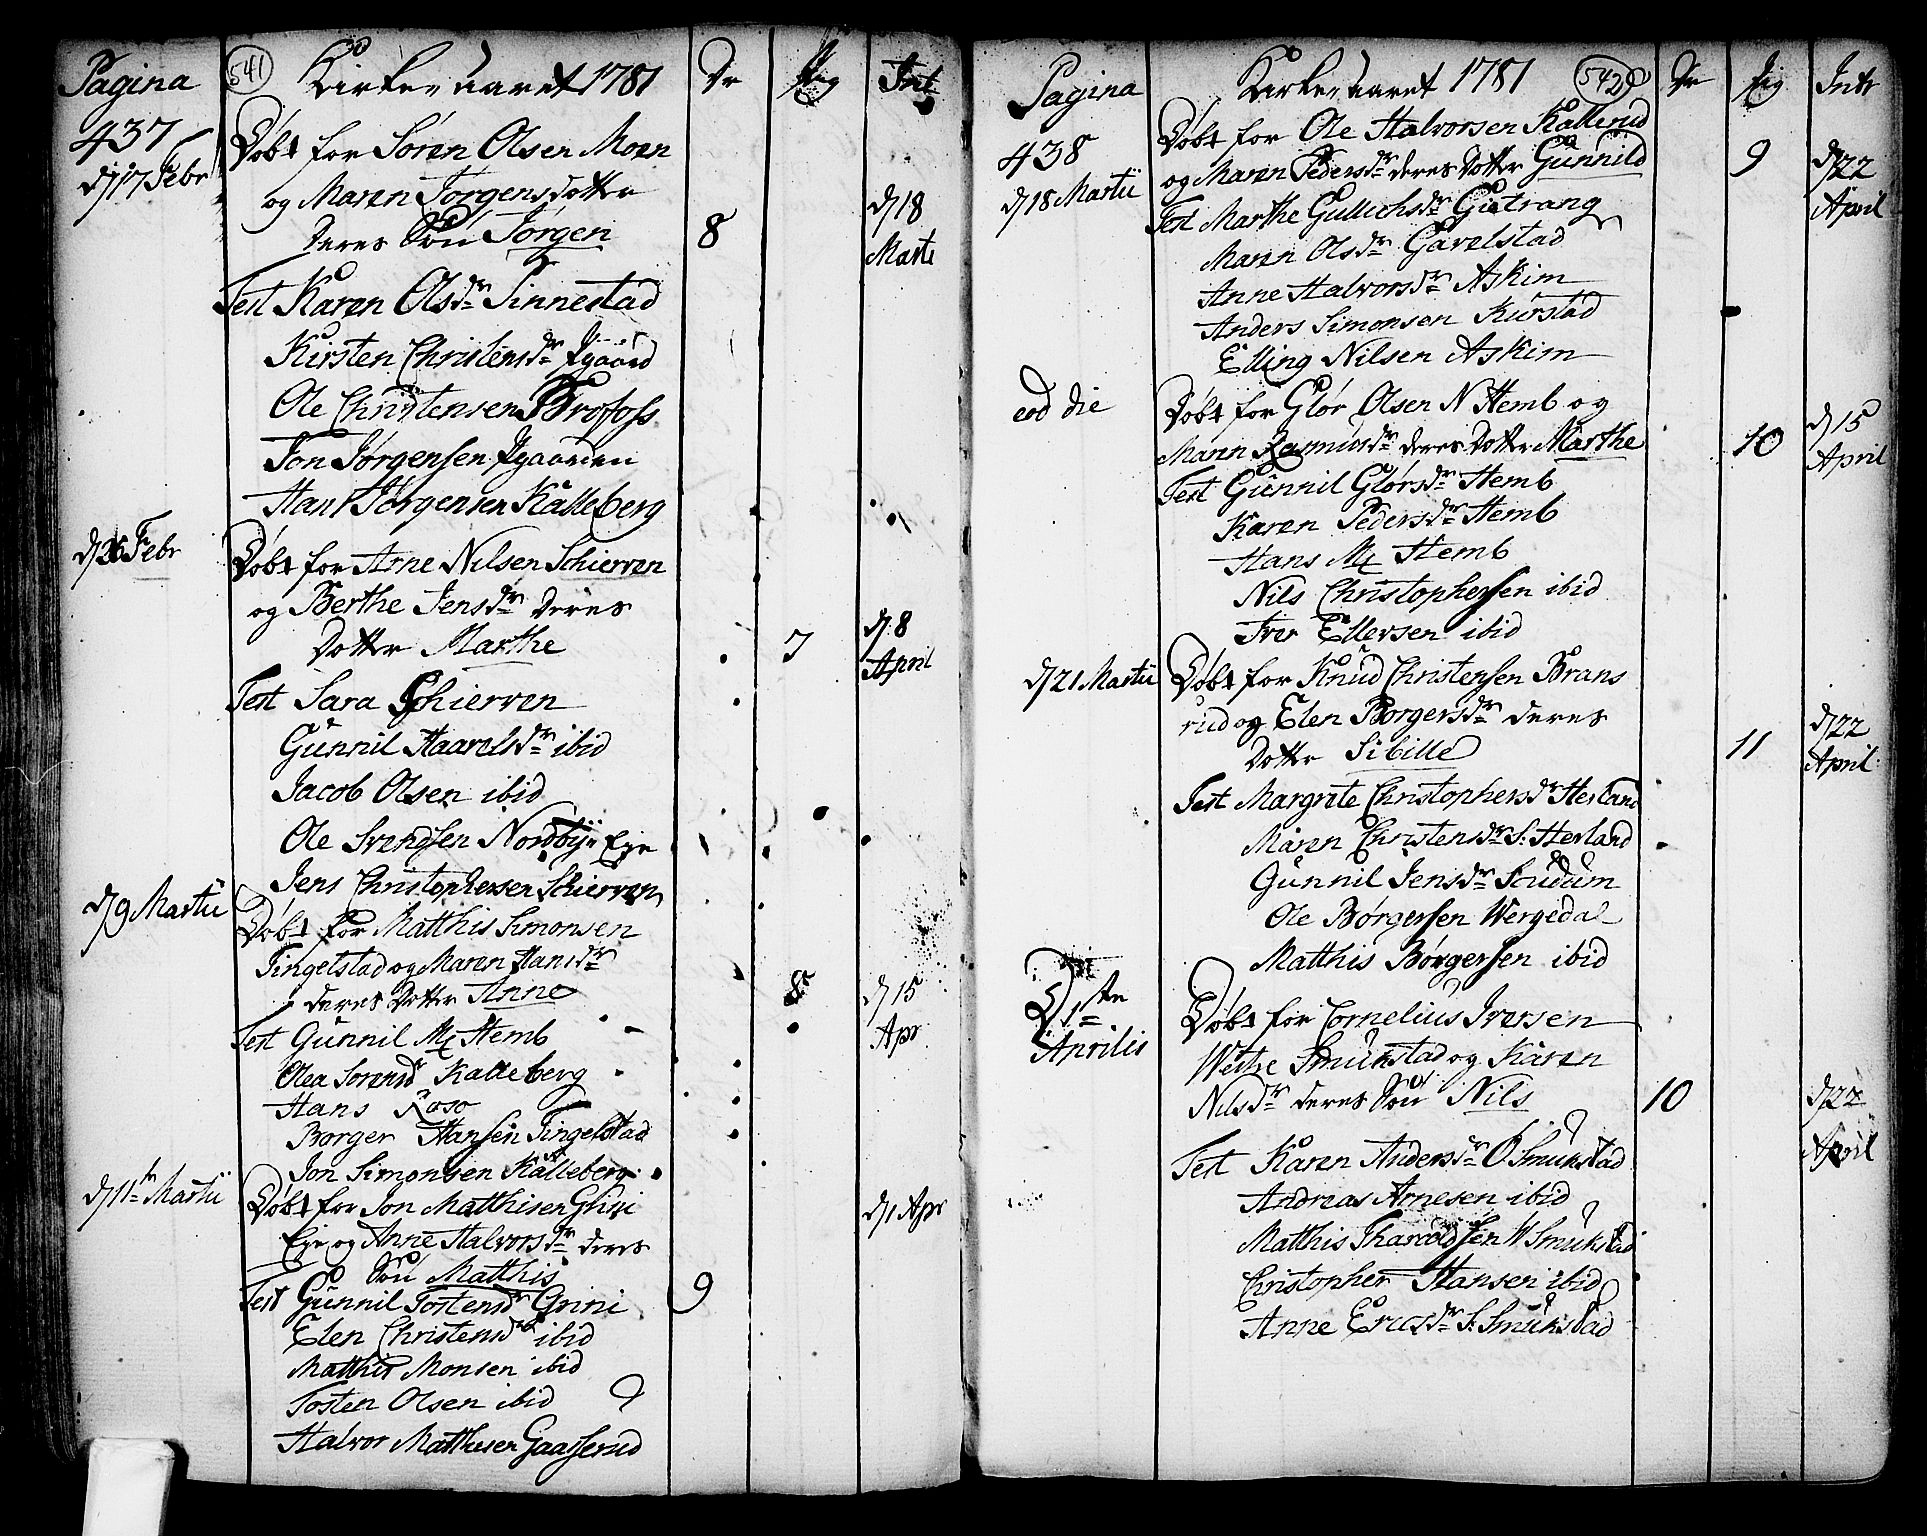 Pagina 541 Kirke aaret 1781 Dr Pig Int
437
d/17 Febr Døbt for Søren Olsen Moen
og Maren Jørgensdotter
deres Søn Jørgen 8 d/18 Marti
Test Karen Olsdr Tinnestad
Kirsten Christensdr
Ole Christensen Brofoss
Jon Jørgensen
Hans Jørgensen Kalleberg
Febr Døbt for Arne Nilsen Schierven
og Berthe Jensdr deres
Dotter Marthe 7 d/8 April
Test Sara Schierven
Gunnil Haavelsdr ibid
Jacob Olsen ibid
Ole Svendsen Nordbÿe Eye
Jens Christophersen Schierven
d/9 Martii Døbt for Matthis Simonsen
Tingelstad og Maren Hansdr
deres Dotter Anne 8 d/15 Apr
Test Gunnil M Hemb
Olea Sorensdr Kalleberg
Hans Roso
Borger Hansen Tingelstad
Jon Simonsen Kalleberg
d/11te Martii Døbt for Jon Matthisen Grini
Eye og Anne Halvorsdr deres d/1 Apr
Søn Matthis
Test Gunnil Tostensdr Grini 9
Elen Christensdr ibid
Matthis Monsen ibid
Tosten Olsen ibid
Halvor Matthisen Gaasserud
Pagina Kirke aaret 1781 542 Dr Pig Intr
438 Døbt for Ole Halvorsen Kallerud
d/18 Martii og Maren Pedersdr deres Dotter Gunnild 9 d/22 April
Test Marthe Gullichsdr
Maren Olsdr Gavelstad
Anne Halvorsdr Askim
Anders Simonsen Kurstad
Elling Nilsen Askim
eod die Døbt for Glør Olsen N Hemb og
Maren Rasmusdr deres Dotter Marthe 10 d/15 April
Test Gunnil Glørsdr Hemb
Karen Pedersdr Hemb
Hans M Hemb
Nils Christophersen ibid
Iver Ellersen ibid
d/21 Martii Døbt for Knud Christensen Brans
rud og Elen Borgersdr deres
Dotter Sibille 11 d/22 April
Test Margrete Christophersdr Herland
Maren Christensdr S: Herland
Gunnil Jensdr Scudum
Ole Børgersen Wergedal
Matthis Børgersen ibid
D/1ste Aprilis Døbt for Cornelius Iversen
Westre Smukstad og Karen
Nilsdr deres Søn Nils 10 d/22 April
Test Karen Andersdr Ø Smukstad
Andreas Arnesen ibid
Matthis Tharaldsen W Smukstad
Christopher Hansen ibid
Anne Ericsdr S: Smukstad